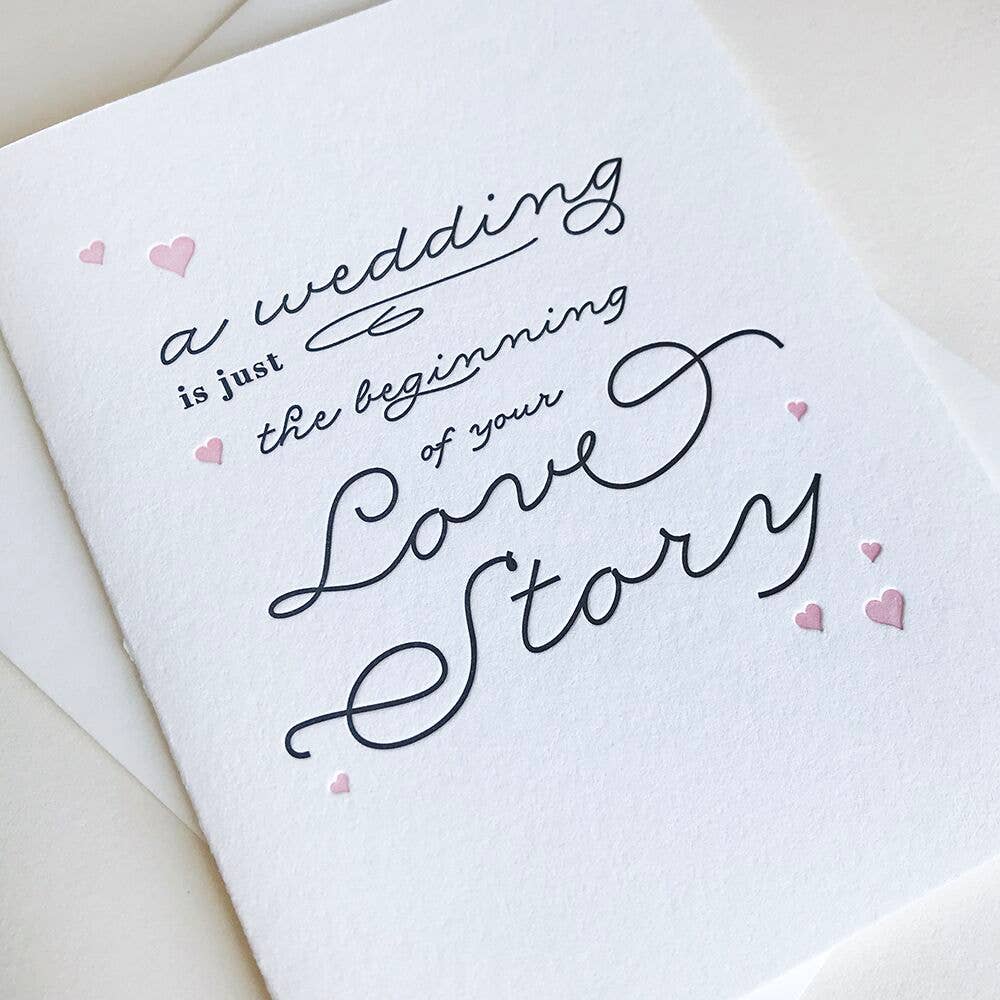 a wedding
is just
the beginning
of your
Love
Story